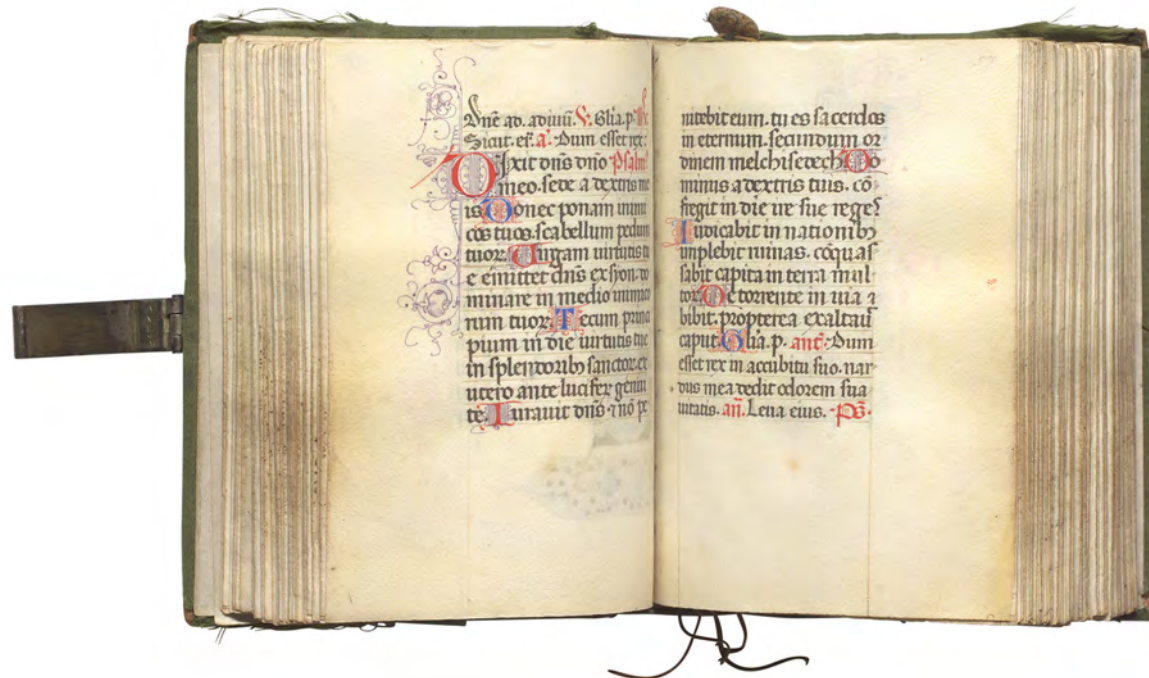 Dne ad. adiuuū. V. Glia. p.
Sicut. er̄. a. Dum esset rex.
Dixit dn̄s dn̄o Psalm̄
meo. sede a dextris me
is Donec ponam inimi
cos tuos. scabellum pedum
tuoꝝ. Uirgam uirtutis tu
e emittet dn̄s ex syon. do
minare in medio inimico
rum tuoꝝ. Tecum princi
pium in die uirtutis tue
in splendoribꝫ sanctoꝝ. ex
utero ante lucifeꝝ genui
te. Iurauit dn̄s. ⁊ nō pe
nitebit eum. tu es sacerdos
in eternum. secundum or
dinem melchisedech Do
minus a dextris tuis. cō
fregit in die ire sue reges
Iudicabit in nationibꝫ
implebit ruinas. cōquas
sabit capita in terra mul
toꝝ. De torrente in uia
bibit. propterea exaltaū
caput. Glia. p. ant̄. Dum
esset rex in accubitu suo. nar
dus mea dedit odorem sua
uitatis. an̄. Leua eius. Ps̄.